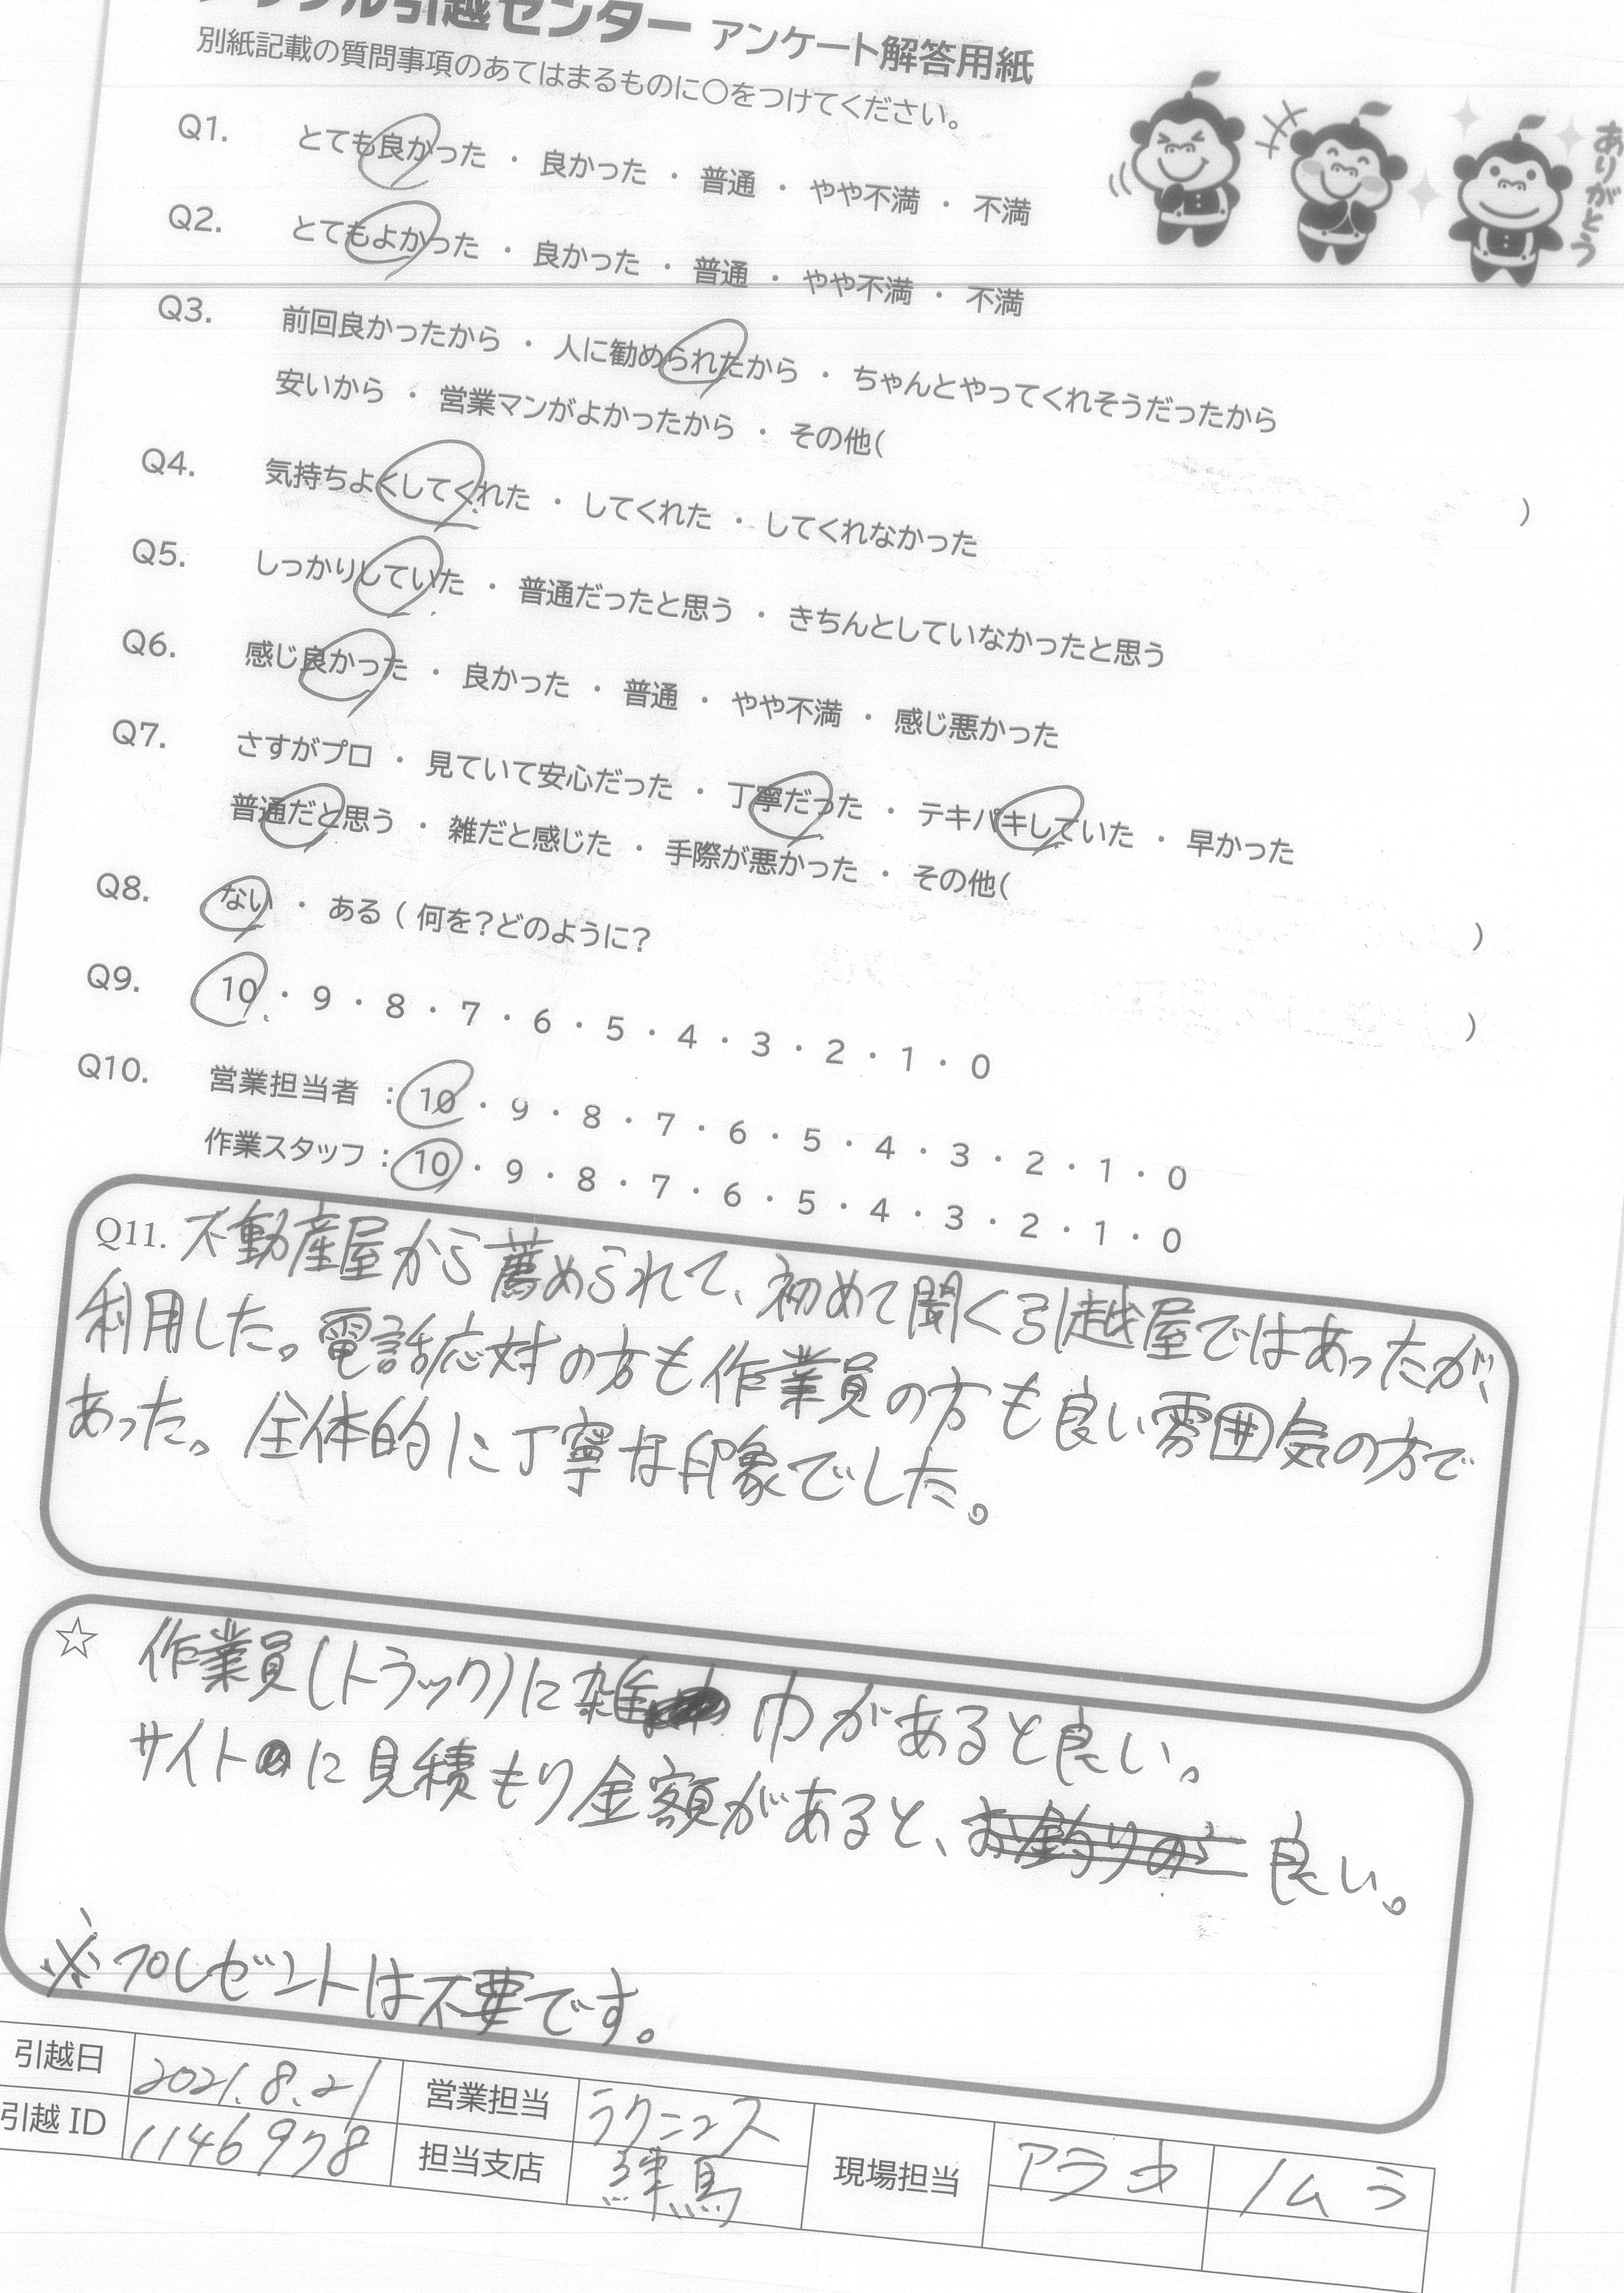 引越センター アンケート解答用紙
別紙記載の質問事項のあてはまるものに〇をつけてください。
ありがとう
Q1. とても良かった ・ 良かった ・ 普通 ・ やや不満 ・ 不満
Q2. とてもよかった ・ 良かった ・ 普通 ・ やや不満 ・ 不満
Q3. 前回良かったから ・ 人に勧められたから ・ ちゃんとやってくれそうだったから
安いから ・ 営業マンがよかったから ・ その他( )
Q4. 気持ちよくしてくれた ・ してくれた ・ してくれなかった
Q5. しっかりしていた ・ 普通だったと思う ・ きちんとしていなかったと思う
Q6. 感じ良かった ・ 良かった ・ 普通 ・ やや不満 ・ 感じ悪かった
Q7. さすがプロ ・ 見ていて安心だった ・ 丁寧だった ・ テキパキしていた ・ 早かった
普通だと思う ・ 雑だと感じた ・ 手際が悪かった ・ その他( )
Q8. ない ・ ある ( 何を?どのように? )
Q9. 10 ・ 9 ・ 8 ・ 7 ・ 6 ・ 5 ・ 4 ・ 3 ・ 2 ・ 1 ・ 0
Q10. 営業担当者 : 10 ・ 9 ・ 8 ・ 7 ・ 6 ・ 5 ・ 4 ・ 3 ・ 2 ・ 1 ・ 0
作業スタッフ : 10 ・ 9 ・ 8 ・ 7 ・ 6 ・ 5 ・ 4 ・ 3 ・ 2 ・ 1 ・ 0
Q11. 不動産屋から薦められて、初めて聞く引越屋ではあったが、
利用した。電話応対の方も作業員の方も良い雰囲気の方で
あった。全体的に丁寧な印象でした。
☆ 作業員(トラック)に雑巾があると良い。
サイトに見積もり金額があると、良い。
※プレゼントは不要です。
引越日 2021.8.21 営業担当 ラクニュス 現場担当 アラキ ノムラ
引越ID 1146978 担当支店 練馬